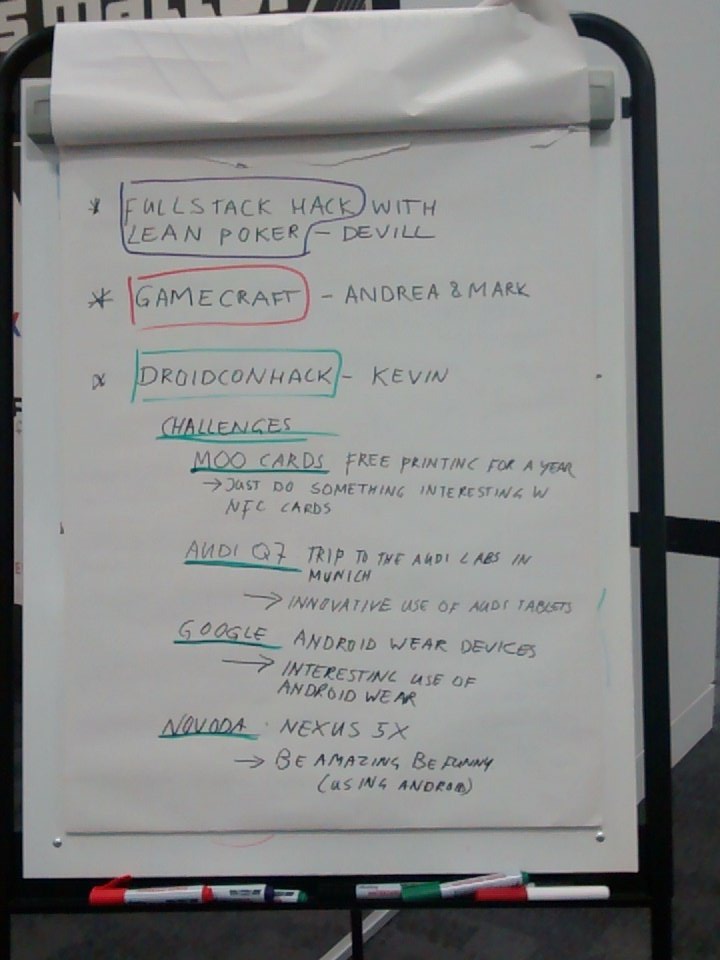 * FULLSTACK HACK WITH
LEAN POKER - DEVILL
* GAMECRAFT - ANDREA & MARK
* DROIDCONHACK - KEVIN
CHALLENGES
MOO CARDS FREE PRINTING FOR A YEAR
→ JUST DO SOMETHING INTERESTING W
NFC CARDS
AUDI Q7 TRIP TO THE AUDI LABS IN
MUNICH
→ INNOVATIVE USE OF AUDI TABLETS
GOOGLE ANDROID WEAR DEVICES
→ INTERESTING USE OF
ANDROID WEAR
NOVODA NEXUS 5X
→ BE AMAZING BE FUNNY
(USING ANDROID)